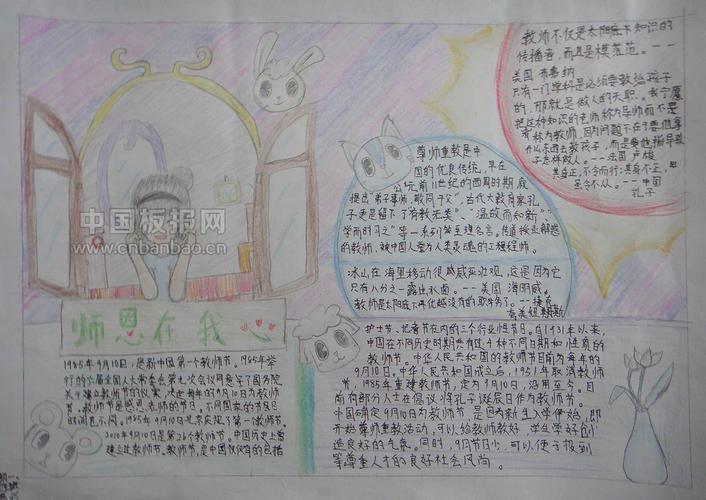 师恩在我心
1985年9月10日，是新中国第一个教师节。1985年举
行的六届全国人大常委会第九次会议同意了国务院
关于建立教师节的议案，决定每年的9月10日为教师
节。教师节是感恩老师的节日。不同国家的节日日
时间也不同。1985年9月10日北京庆祝了第一个教师节。
2010年9月10日是第26个教师节。中国历史上曾
建立过教师节。教师节，是中国仅有的包括
中国板报网
www.cnbanbao.cn
尊师重教是中
国的优良传统，早在
公元前11世纪的西周时期就
提出“弟子事师，敬同于父”，古代大教育家孔
子更是留下了“有教无类”、“温故而知新”、
“学而时习之”等一系列的至理名言。传道授业解惑
的教师，被中国人誉为人类灵魂的工程师。
冰山在海里移动很威威严壮观，这是因为它
只有八分之一露出水面。--美国 海明威
教师是太阳底下再优越没有的职务了。--捷克
夸美纽斯
教师不仅是太阳底下知识的
传播者，而且是模范。--
美国 布鲁纳
只有一门学科是必须要教给孩子
的，那就是做人的天职。我宁愿
把这种知识的老师称为导师而不要
称为教师，因为问题不在于要他拿
什么东西去教孩子，而是要他指导孩
子怎样做人。--法国 卢梭
其身正，不令而行；其身不正，虽
令不从。--中国
孔子
护士节、记者节在内的三个行业性节日。自1931年以来，
中国在不同历史时期共有过4种不同日期和性质的
教师节。中华人民共和国的教师节目前为每年的
9月10日。中华人民共和国成立后，1951年取消教师节
，1985年重建教师节，定为9月10日，沿用至今。目
前有部分人士在倡议将孔子诞辰日作为教师节。
中国确定9月10日为教师节，是因为新生入学伊始，即
开始尊师重教活动，可以给教师教好、学生学好创
造良好的气氛。同时，9月节日少，可以便于报刊
等尊重人才的良好社会风尚。